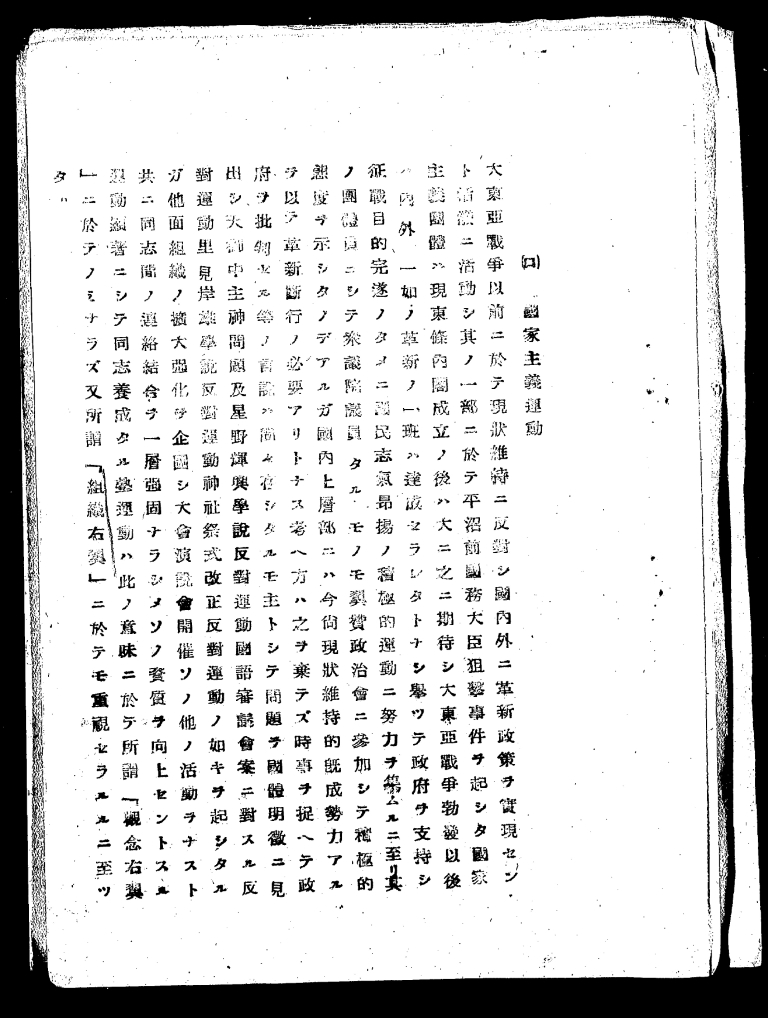 ㈡ 國家主義運動
大東亞戰爭以前ニ於テ現狀維持ニ反對シ國內外ニ革新政策ヲ實現セン
ト活潑ニ活動シ其ノ一部ニ於テ平沼前國務大臣狙擊事件ヲ起シタ國家
主義團體ハ現東條內閣成立ノ後ハ大ニ之ニ期待シ大東亞戰爭勃發以後
ハ內外一如ノ革新ノ一班ハ達成セラレタトナシ擧ツテ政府ヲ支持シ
征戰目的完遂ノタメニ國民志氣昂揚ノ積極的運動ニ努力ヲ集ムルニ至リ其
ノ團體員ニシテ衆議院議員タルモノモ翼贊政治會ニ參加シテ積極的
態度ヲ示シタノデアルガ國內上層部ニハ今尙現狀維持的旣成勢力アル
ヲ以テ革新斷行ノ必要アリトナス考ヘ方ハ之ヲ棄テズ時事ヲ捉ヘテ政
府ヲ批判セル等ノ言說ハ尙々存シタルモ主トシテ問題ヲ國體明徵ニ見
出シ天御中主神問題及星野輝興學說反對運動國語審議會案ニ對スル反
對運動里見岸雄學說反對運動神社祭式改正反對運動ノ如キヲ起シタル
ガ他面組織ノ擴大强化ヲ企圖シ大會演說會開催ソノ他ノ活動ヲナスト
共ニ同志間ノ連絡結合ヲ一層强固ナラシメソノ資質ヲ向上セントスル
運動顯著ニシテ同志養成タル塾運動ハ此ノ意味ニ於テ所謂「觀念右翼
」ニ於テノミナラズ又所謂「組織右翼」ニ於テモ重視セラルルニ至ツ
タ。